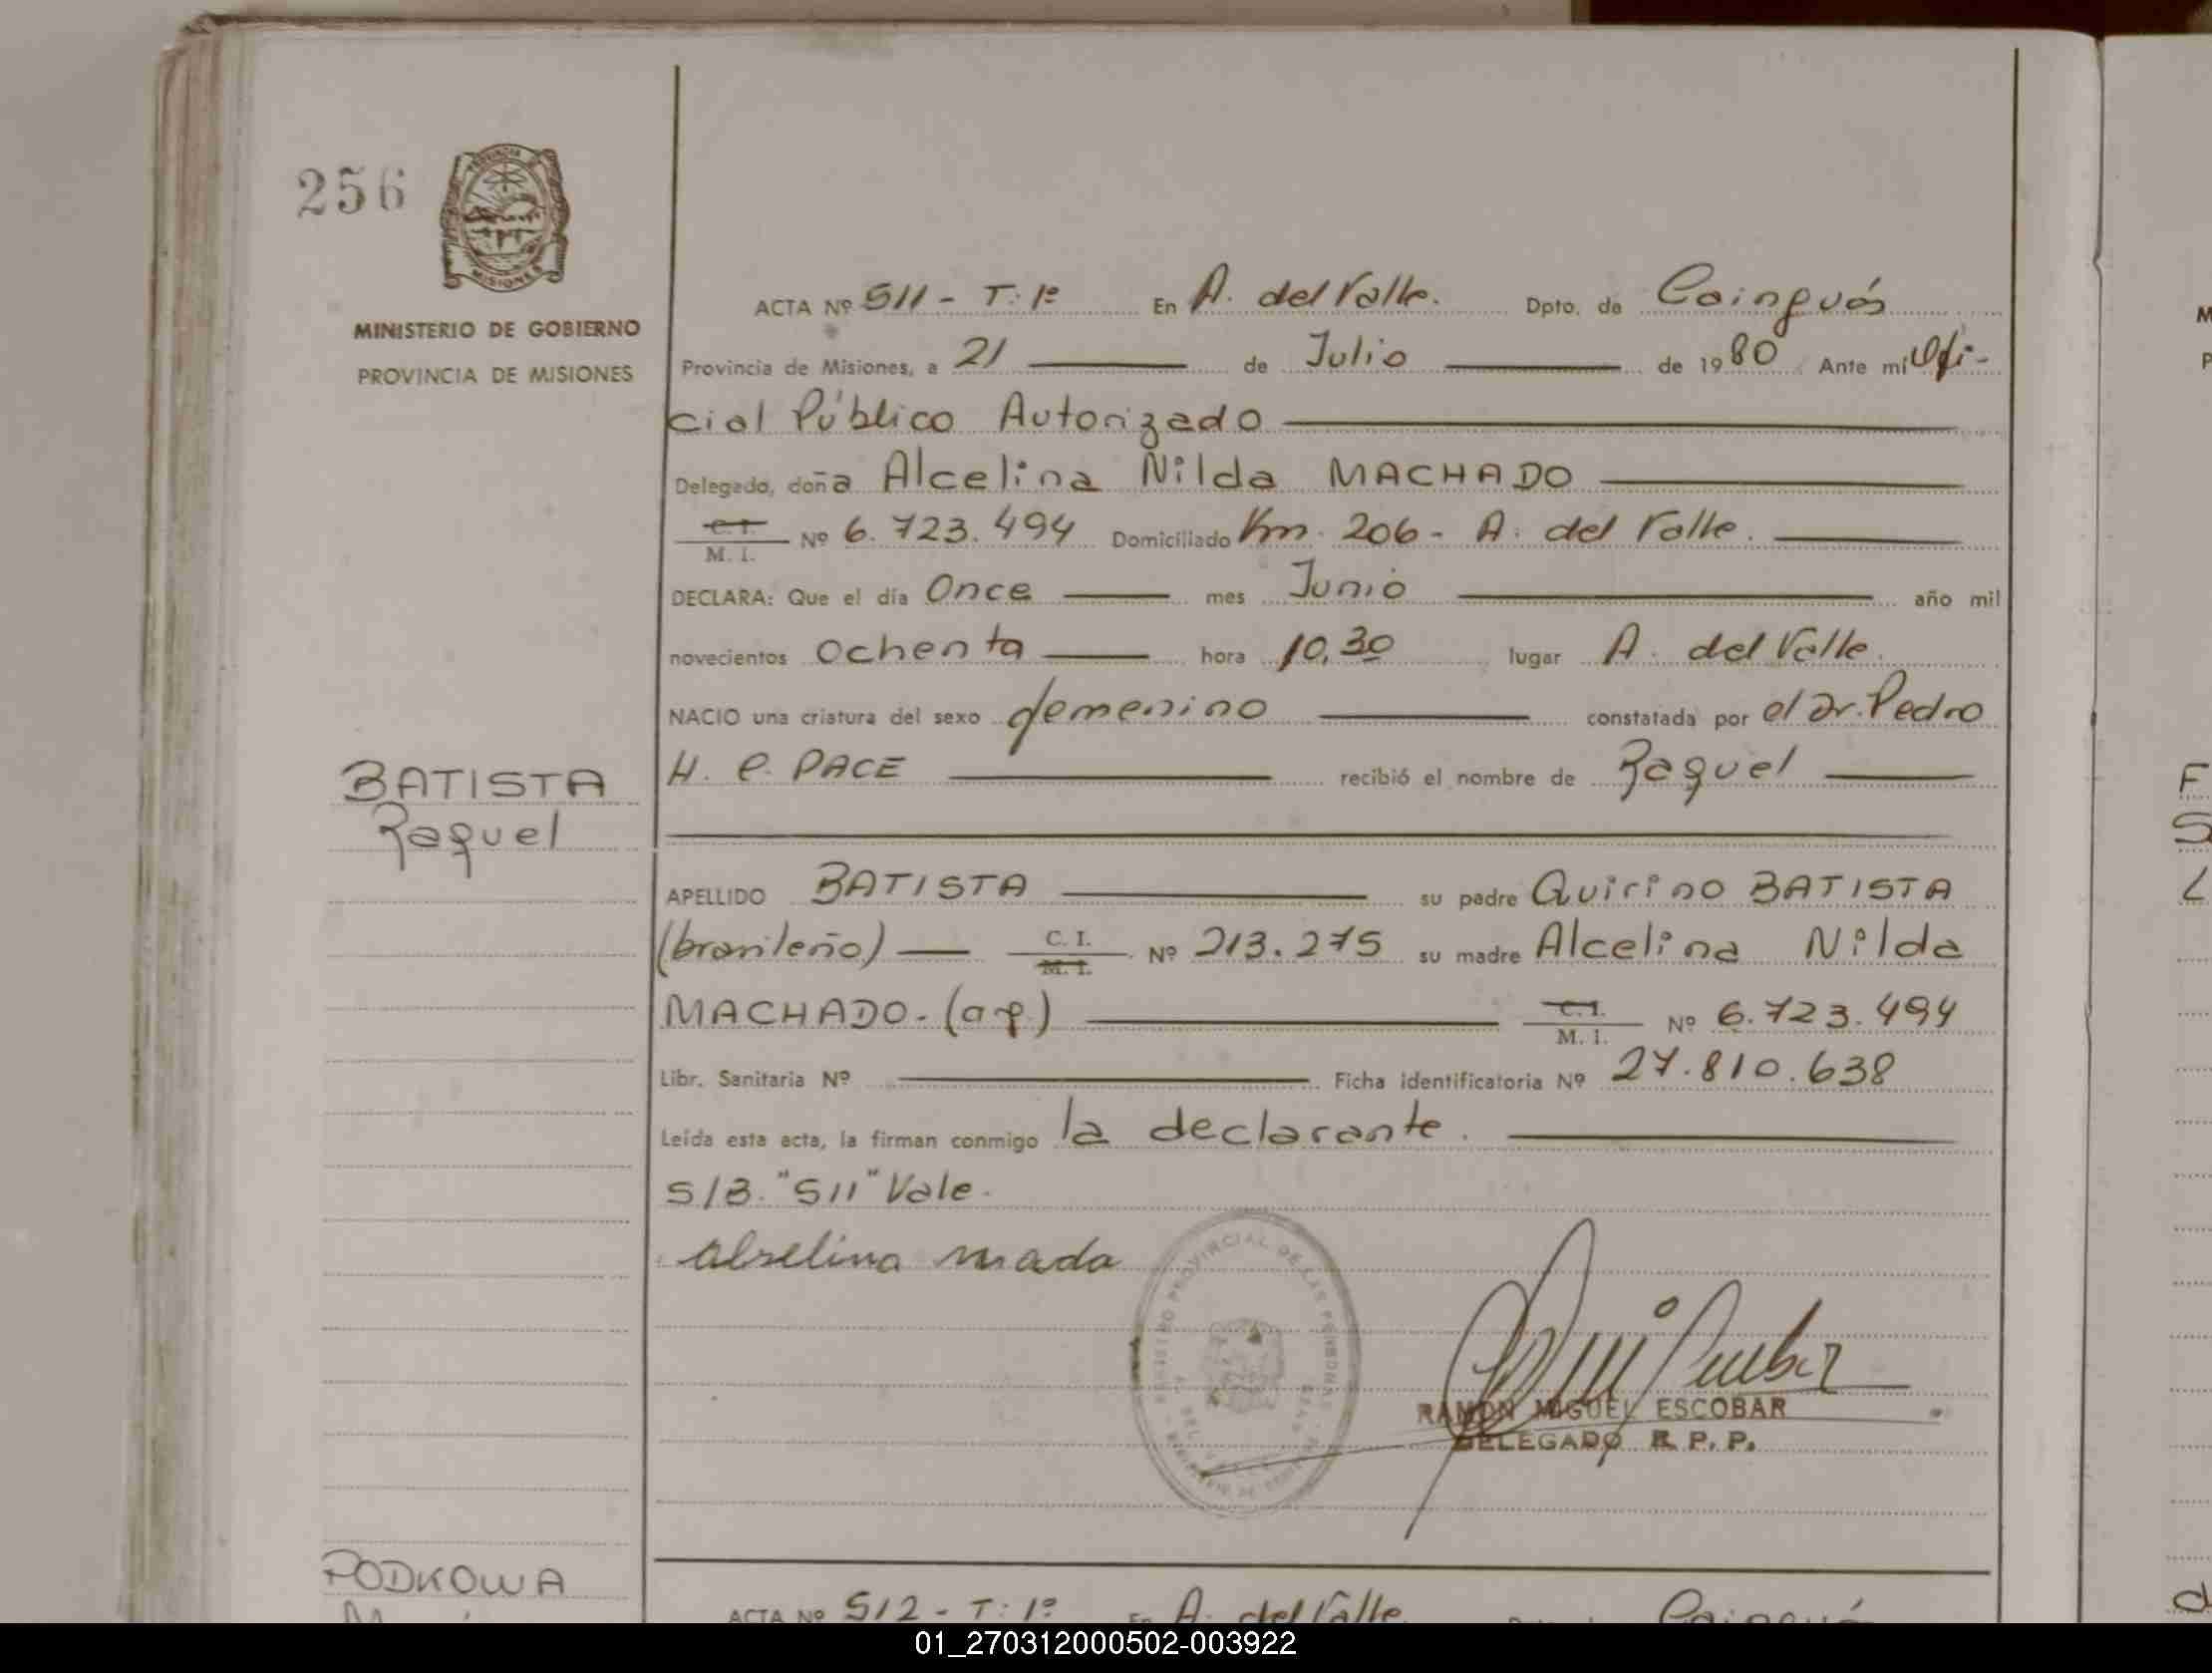 256
PROVINCIA
MISIONES
MINISTERIO DE GOBIERNO
PROVINCIA DE MISIONES
ACTA Nº 511 - T: 1º En A. del Valle. Dpto. de Cainguás
Provincia de Misiones, a 21 de Julio de 1980 Ante mí Ofi-
cial Público Autorizado
Delegado, doña Alcelina Nilda MACHADO
C. I.
M. I. Nº 6.723.494 Domiciliado Km. 206 - A. del Valle.
DECLARA: Que el día Once mes Junio año mil
novecientos ochenta hora 10,30 lugar A. del Valle.
NACIO una criatura del sexo femenino constatada por el Dr. Pedro
H. C. PACE recibió el nombre de Raquel
BATISTA
Raquel
APELLIDO BATISTA su padre Quirino BATISTA
(brasileño) C. I. M. I. Nº 213.275 su madre Alcelina Nilda
MACHADO - (arg) C. I. M. I. Nº 6.723.494
Libr. Sanitaria Nº Ficha Identificatoria Nº 27.810.638
Leída esta acta, la firman conmigo la declarante.
S/B. "511" Vale.
alselina mada
REGISTRO PROVINCIAL DE LAS PERSONAS
RAMON MIGUEL ESCOBAR
DELEGADO R. P. P.
PODKOWA
ACTA Nº 512 - T: 1º En A. del Valle. Cainguás
01_270312000502-003922